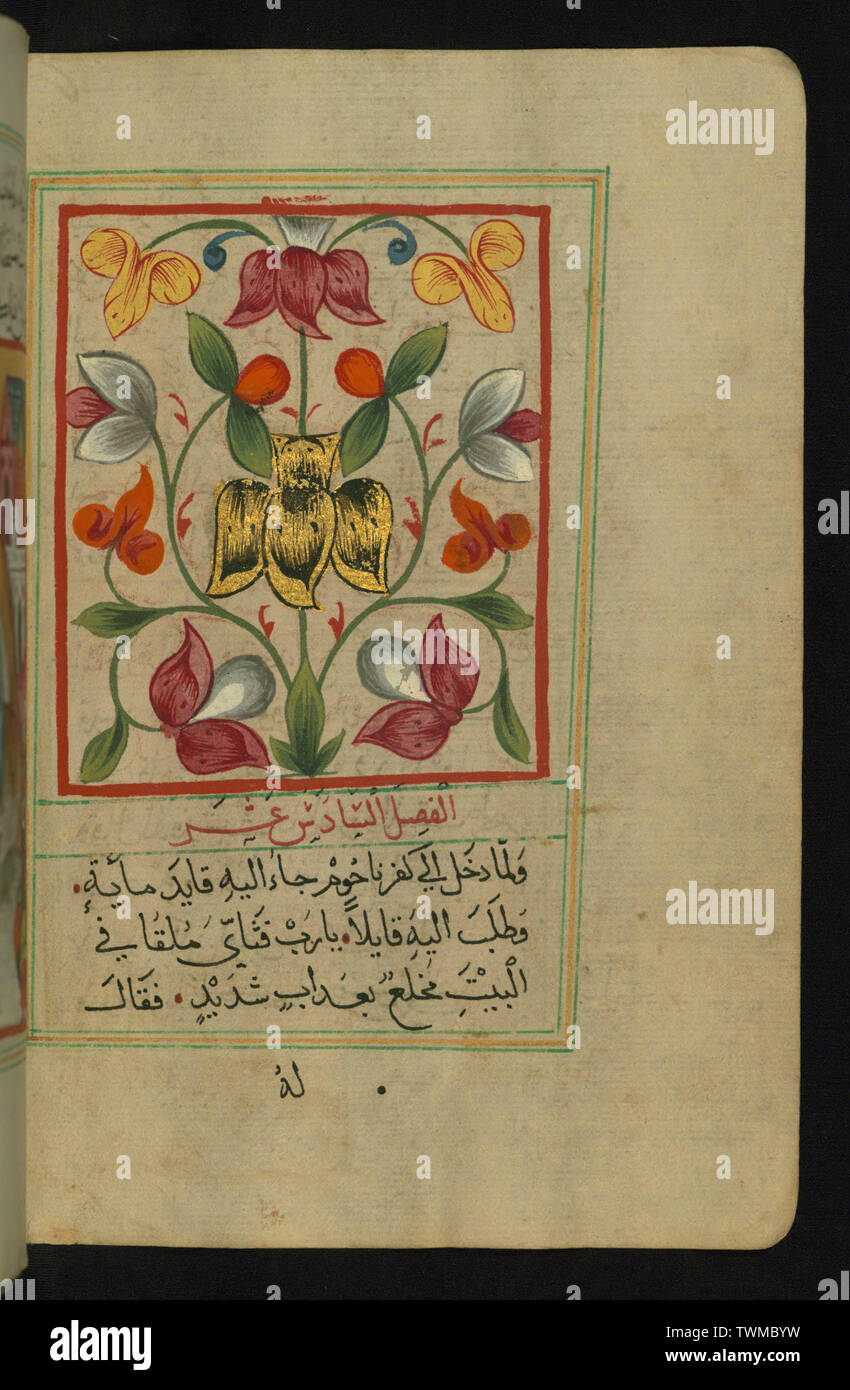 الفصل السادس عشر
ولما دخل الي كفرناحوم جاء اليه قايد مايةٍ.
وطلبَ اليهِ قايلاً. يارب فتايَ مُلقا في
البيتِ مخلعٌ بعداب شديدٍ. فقال
لهُ
a
alamy
a
alamy
a
alamy
a
alamy
Image ID: TWMBYW
www.alamy.com